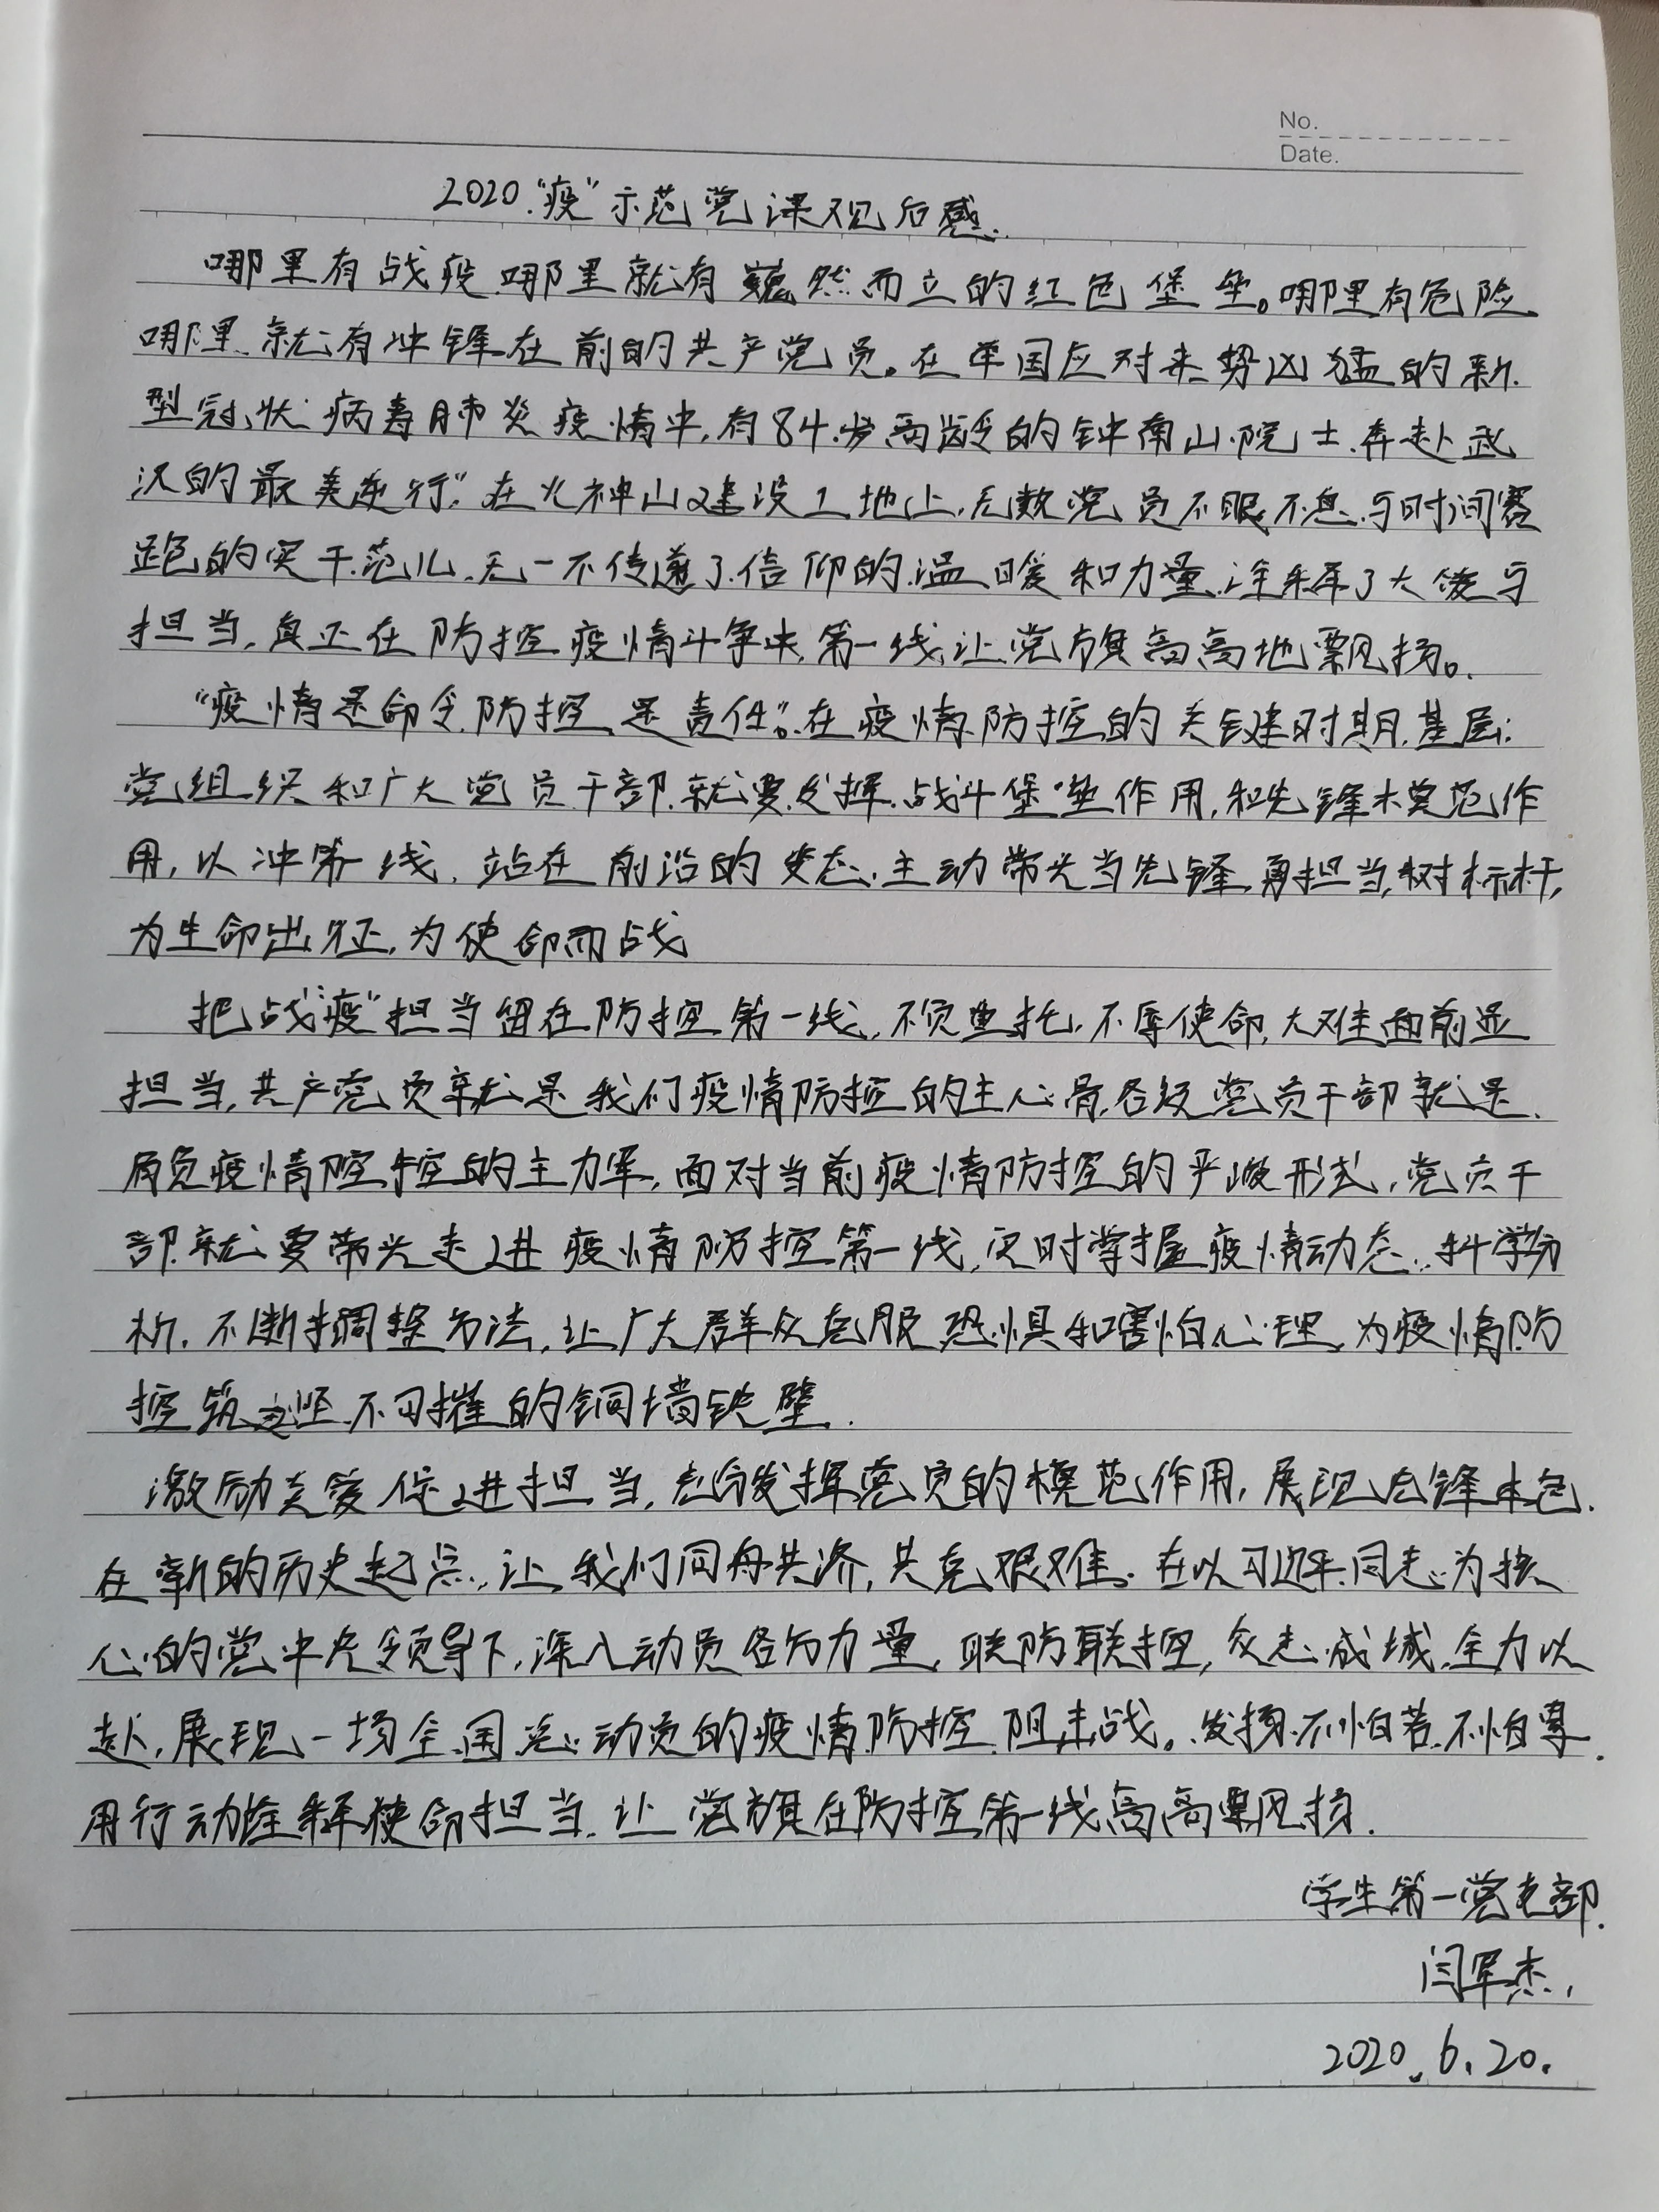 No.
Date.
2020“疫”示范党课观后感.
哪里有战疫.哪里就有巍然而立的红色堡垒。哪里有危险.
哪里就有冲锋在前的共产党员。在举国应对来势凶猛的新
型冠状病毒肺炎疫情中,有84岁高龄的钟南山院士.奔赴武
汉的最美逆行”.在火神山建设工地上,无数党员不眠不息.与时间赛
跑的实干范儿.无一不传递了信仰的温暖和力量.诠释了大爱与
担当,真正在防控疫情斗争中,第一线,让党旗高高地飘扬。
“疫情是命令.防控是责任”。在疫情防控的关键时期.基层
党组织和广大党员干部.就要发挥战斗堡垒作用,和先锋模范作
用,以冲第一线,站在前沿的姿态.主动带头当先锋,勇担当,树标杆,
为生命出征,为使命而战
把战“疫”担当留在防控第一线,不负重托,不辱使命,大难面前显
担当,共产党员就是我们疫情防控的主心骨,各级党员干部就是.
肩负疫情防控的主力军,面对当前疫情防控的严峻形式,党员干
部就要带头走进疫情防控第一线,及时掌握疫情动态.科学分
析.不断调整方法,让广大群众克服恐惧和害怕心理,为疫情防
控筑造坚不可摧的铜墙铁壁.
激励关爱促进担当,充分发挥党员的模范作用,展现先锋本色.
在新的历史起点,让我们同舟共济,共克艰难.在以习近平同志为核
心的党中央领导下,深入动员各方力量,联防联控,众志成城,全力以
赴,展现一场全国总动员的疫情防控阻击战。发扬不怕苦.不怕累.
用行动诠释使命担当.让党旗在防控第一线高高飘扬.
学生第一党支部.
闫军杰.
2020.6.20.